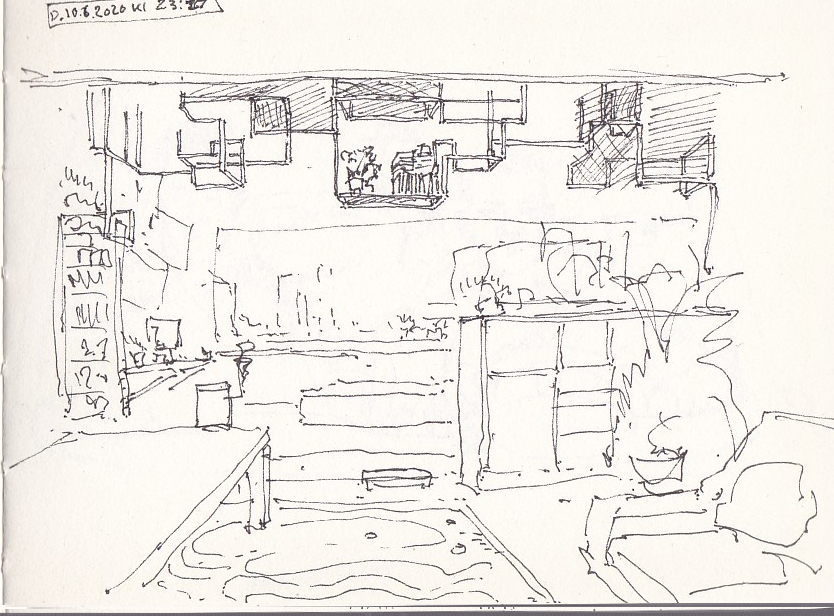 D. 10.6.2020 Kl 23:27